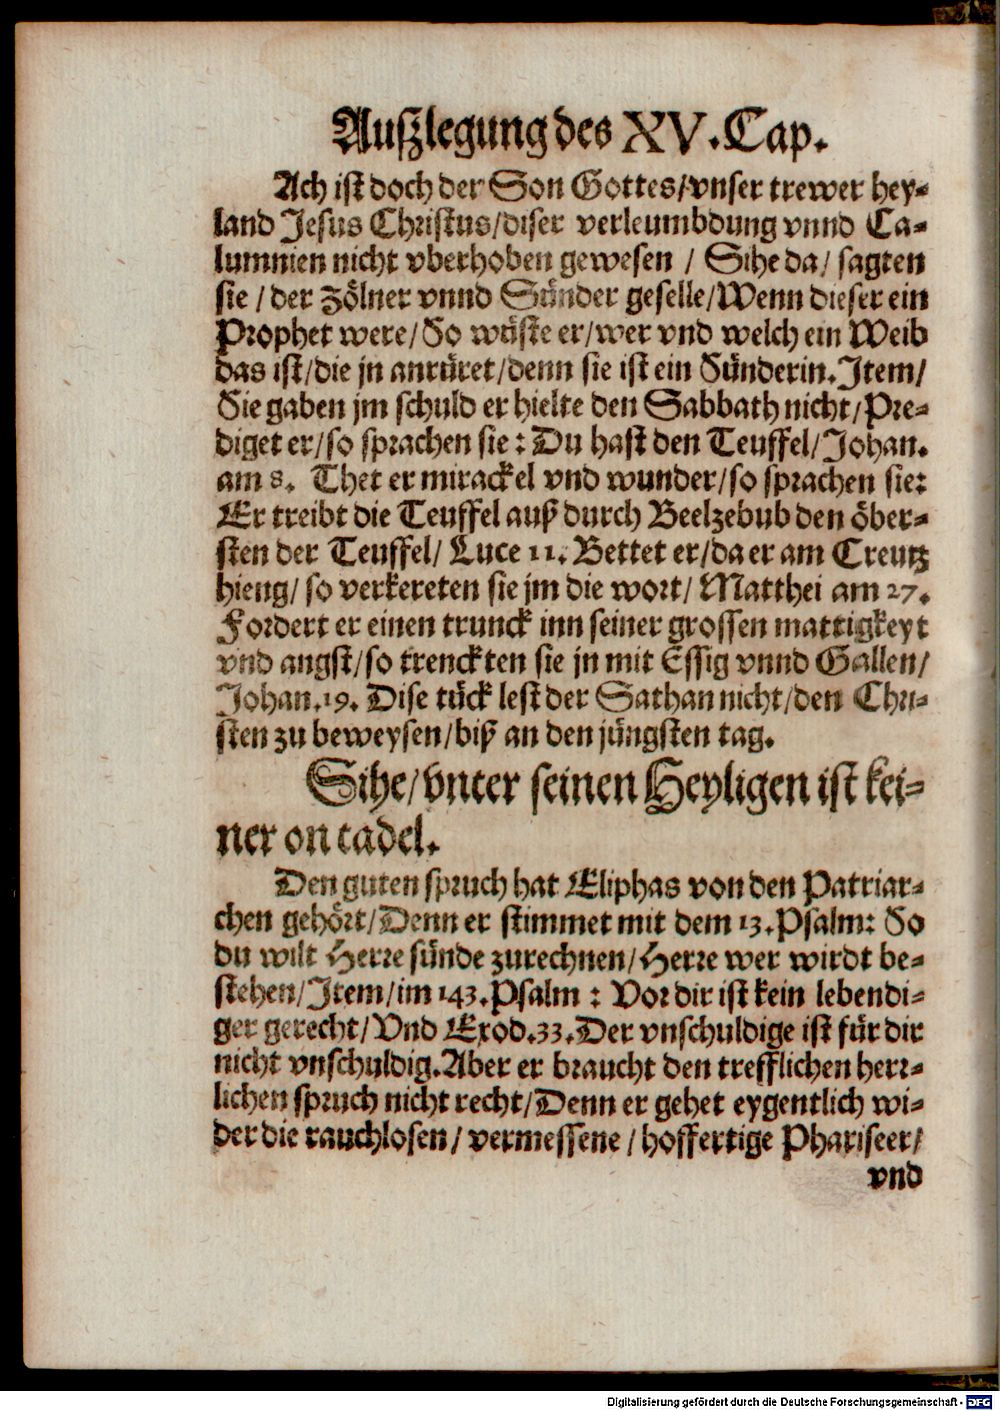 Auszlegung des XV. Cap.
Ach ist doch der Son Gottes/vnser trewer hey-
land Jesus Christus/diser verleumbdung vnnd Ca-
lumnien nicht vberhoben gewesen / Sihe da/ sagten
sie / der Zölner vnnd Sünder geselle/Wenn dieser ein
Prophet were/So wüste er/wer vnd welch ein Weib
das ist/die jn anrüret/denn sie ist ein Sünderin. Item/
Sie gaben jm schuld er hielte den Sabbath nicht/Pre-
diget er/so sprachen sie: Du hast den Teuffel/Johan.
am 8. Thet er mirackel vnd wunder/so sprachen sie:
Er treibt die Teuffel auß durch Beelzebub den öber-
sten der Teuffel/ Luce 11. Bettet er/da er am Creutz
hieng/ so verkereten sie jm die wort/ Matthei am 27.
Fordert er einen trunck inn seiner grossen mattigkeyt
vnd angst/so trenckten sie jn mit Essig vnnd Gallen/
Johan.19. Dise tück lest der Sathan nicht/den Chri-
sten zu beweysen/biß an den jüngsten tag.
Sihe/vnter seinen Heyligen ist kei-
ner on tadel.
Den guten spruch hat Eliphas von den Patriar-
chen gehört/Denn er stimmet mit dem 13.Psalm: So
du wilt Herre sünde zurechnen/Herre wer wirdt be-
stehen/Item/im 143.Psalm : Vor dir ist kein lebendi-
ger gerecht/Vnd Exod.33.Der vnschuldige ist für dir
nicht vnschuldig.Aber er braucht den trefflichen herr-
lichen spruch nicht recht/Denn er gehet eygentlich wi-
der die rauchlosen/ vermessene / hoffertige Phariseer/
vnd
Digitalisierung gefördert durch die Deutsche Forschungsgemeinschaft - DFG